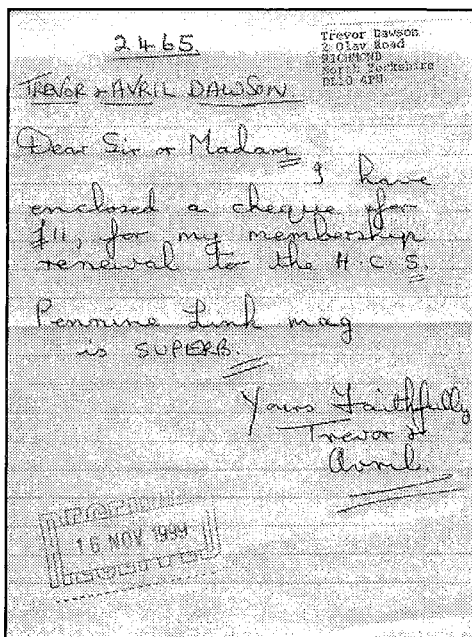 2465.
Trevor Dawson
2 Olav Road
RICHMOND
North Yorkshire
DL10 4PU
TREVOR & AVRIL DAWSON
Dear Sir or Madam
I have
enclosed a cheque for
£11, for my membership
renewal to the H.C.S.
Pennine Link mag
is SUPERB.
Yours Faithfully
Trevor &
Avril.
16 NOV 1999